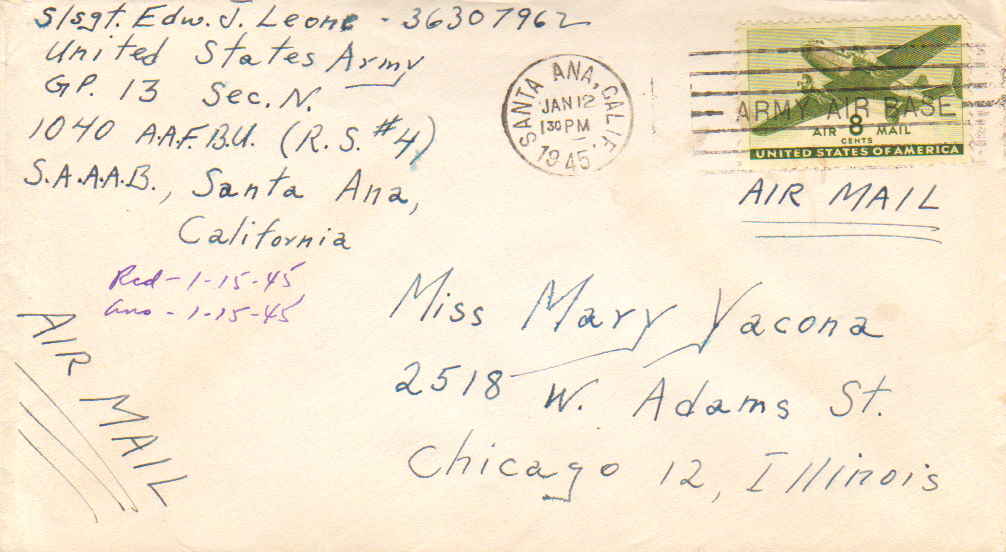 S/Sgt. Edw. J. Leone - 36307962
United States Army
GP. 13 Sec. N.
1040 A.A.F.B.U. (R.S. #4)
S.A.A.A.B., Santa Ana,
California
SANTA ANA, CALIF.
JAN 12
1 30 PM
1945
ARMY AIR BASE
AIR 8 MAIL
CENTS
UNITED STATES OF AMERICA
AIR MAIL
Rcd - 1-15-45
Ans - 1-15-45
AIR MAIL
Miss Mary Yacona
2518 W. Adams St.
Chicago 12, Illinois